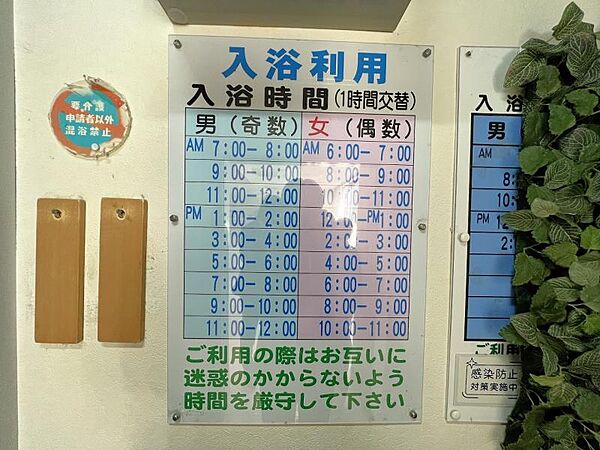 要介護
申請者以外
混浴禁止
入浴利用
入浴時間(1時間交替)
男(奇数) 女(偶数)
AM 7:00-8:00 AM 6:00-7:00
9:00-10:00 8:00-9:00
11:00-12:00 10:00-11:00
PM 1:00-2:00 12:00-PM1:00
3:00-4:00 2:00-3:00
5:00-6:00 4:00-5:00
7:00-8:00 6:00-7:00
9:00-10:00 8:00-9:00
11:00-12:00 10:00-11:00
ご利用の際はお互いに
迷惑のかからないよう
時間を厳守して下さい
入
男
AM
8:
10:
12:
2:
ご利
感染防止
対策実施中